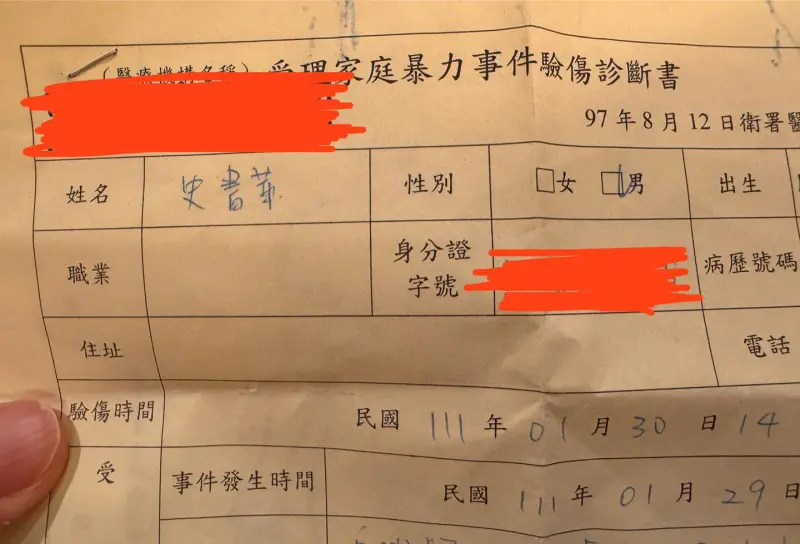 (醫療機構名稱) 受理家庭暴力事件驗傷診斷書
97年8月12日衛署醫
姓名 史書華 性別 □女 □男 出生
職業 身分證字號 病歷號碼
住址 電話
驗傷時間 民國 111 年 01 月 30 日 14
受 事件發生時間 民國 111 年 01 月 29 日